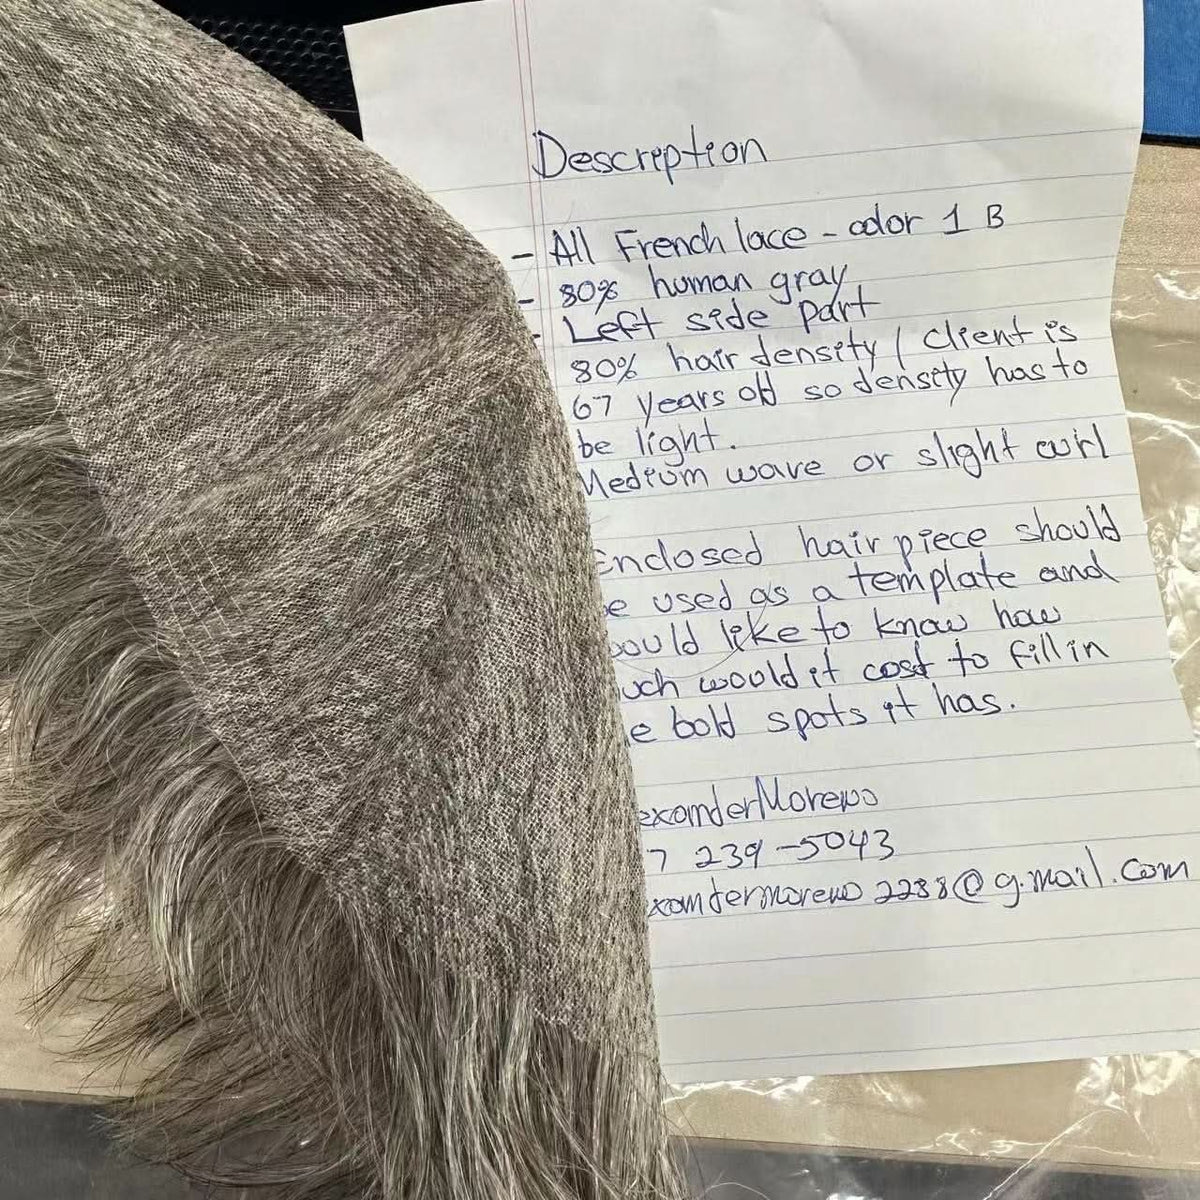 Description
- All French lace - color 1 B
- 80% human gray
- Left side part
80% hair density / Client is
67 years old so density has to
be light.
Medium wave or slight curl
Enclosed hair piece should
be used as a template and
would like to know how
much would it cost to fill in
bold spots it has.
Moreno
7 239-5043
2238@g.mail.com